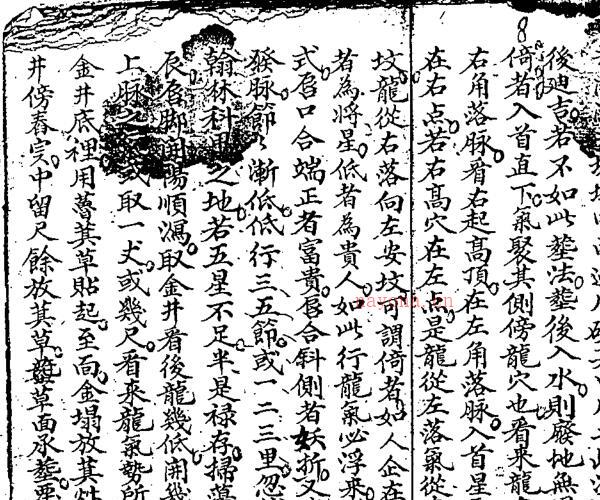 後廸吉若不如此塟法塟後入水則廢地無
8
倚者入首直下氣聚其側傍龍穴也看來龍
右角落脉看右起高頂在左角落脉入首星
在右点若右高穴在左点是龍從左落氣從
坟龍從右落向左安坟可謂倚者如人企在
者為將星低者為貴人如此行龍氣必浮來
式唇口合端正者富貴唇合斜側者妖折又
發脉節〻漸低低行三五節或一二三里忽
翰林科甲之地若五星不足半是禄存掃蕩
辰唇脚開陽順瀉取金井看後龍幾低開幾
上脉之 或取一丈或幾尺看來龍氣勢所
金井底裡用蓍萁草貼起至面金塌放萁
井傍舂实中留尺餘放萁草 草面承塟